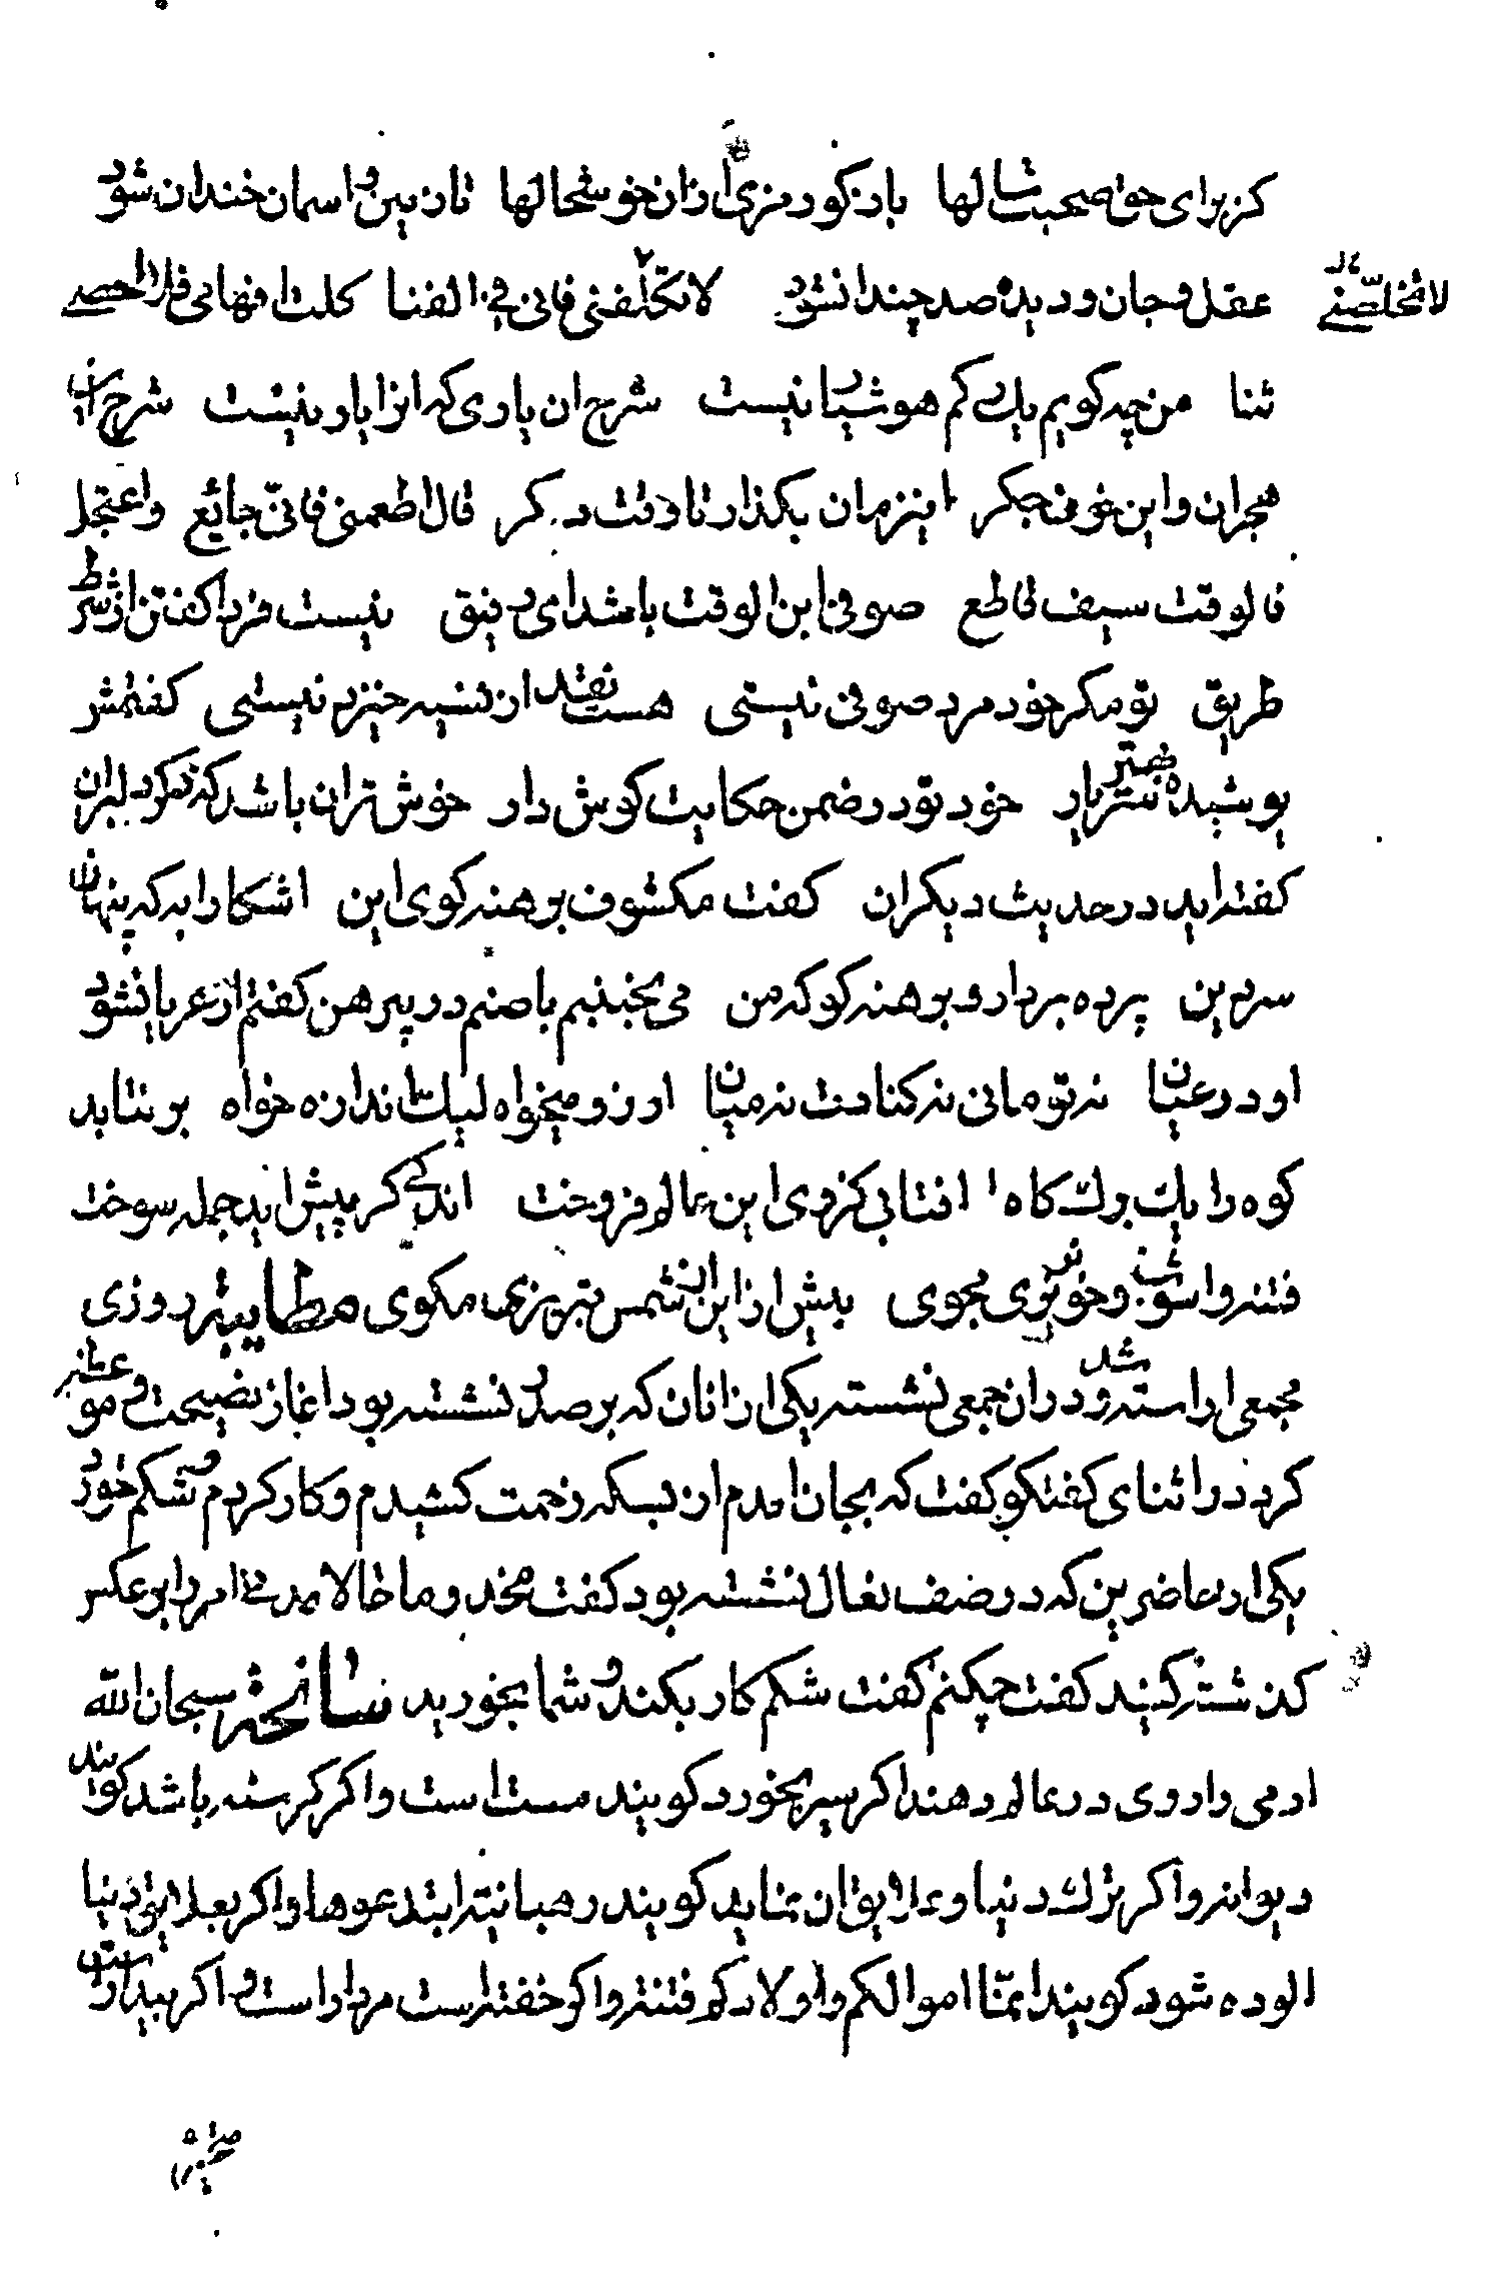 کز برای حق صحبت سالها باز کو رمزی ازان خوشحالها تا زمین و اسمان خندان شود
عقل و جان و دیده صد چندان شود لا تکلفنی فانی فی الفنا کلت افهامی فلا احصی
ثنا من چه کویم یک رکم هوشیار نیست شرح ان یاری که انرا یار نیست شرح این
هجران و این خون جکر این زمان بکذار تا وقت دکر قال اطعمنی فانی جائع واعتجل
فالوقت سیف قاطع صوفی ابن الوقت باشد ای رفیق نیست فردا کفتن از شرط
طریق تو مکر خود مرد صوفی نیستی هست نقد از نسیه خیزد نیستی کفتمش
پوشیده خوشتر سر یار خود تو در ضمن حکایت کوش دار خوش تر ان باشد که ذکر دلبران
کفته اید در حدیث دیکران کفت مکشوف برهنه کوی این اشکارا به که پنهان
سر دین پرده بردار و برهنه کو که من می نخبنیم با صنم در پیرهن کفتم ار عریان شود
او در عیان نه تو مانی نه کنارت نه میان ارزو میخواه لیک اندازه خواه بر نتابد
کوه را یک برک کاه افتابی کز وی این عالم فروخت اندکی کر پیش اید جمله سوخت
فتنه و اشوب و خونریزی مجوی بیش از این از شمس تبریزی مکوی مطایبة روزی
مجمعی اراسته شد و دران جمعی نشسته یکی ازانان که بر صدر نشسته بود اغاز نصیحت و موعظه
کرد در اثنای کفتکو کفت که بجان امدم از بسکه زحمت کشیدم و کار کردم و شکم خورد
یکی از حاضرین که در صف نعال نشسته بود کفت مخدوما حالا مدتی امر را بر عکس
کذشته کنید کفت چکنم کفت شکم کار بکند و شما بخورید سانحة سبحان الله
ادمی را روی در عالم دهند اکر سیر بخورد کویند مست است و اکر کرسنه باشد کویند
دیوانه و اکر ترک دنیا و علایق ان نماید کویند رهبانیة ابتدعوها و اکر بعلایق دنیا
الوده شود کویند انما اموالکم و اولادکم فتنة و اکر خفته است مردار است و اکر بیدار است
لا تخلصنی